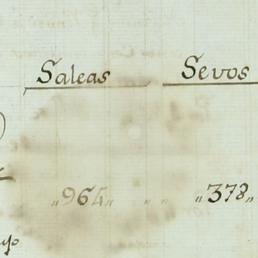 Saleas Sevos
„964„ „ „ „378„